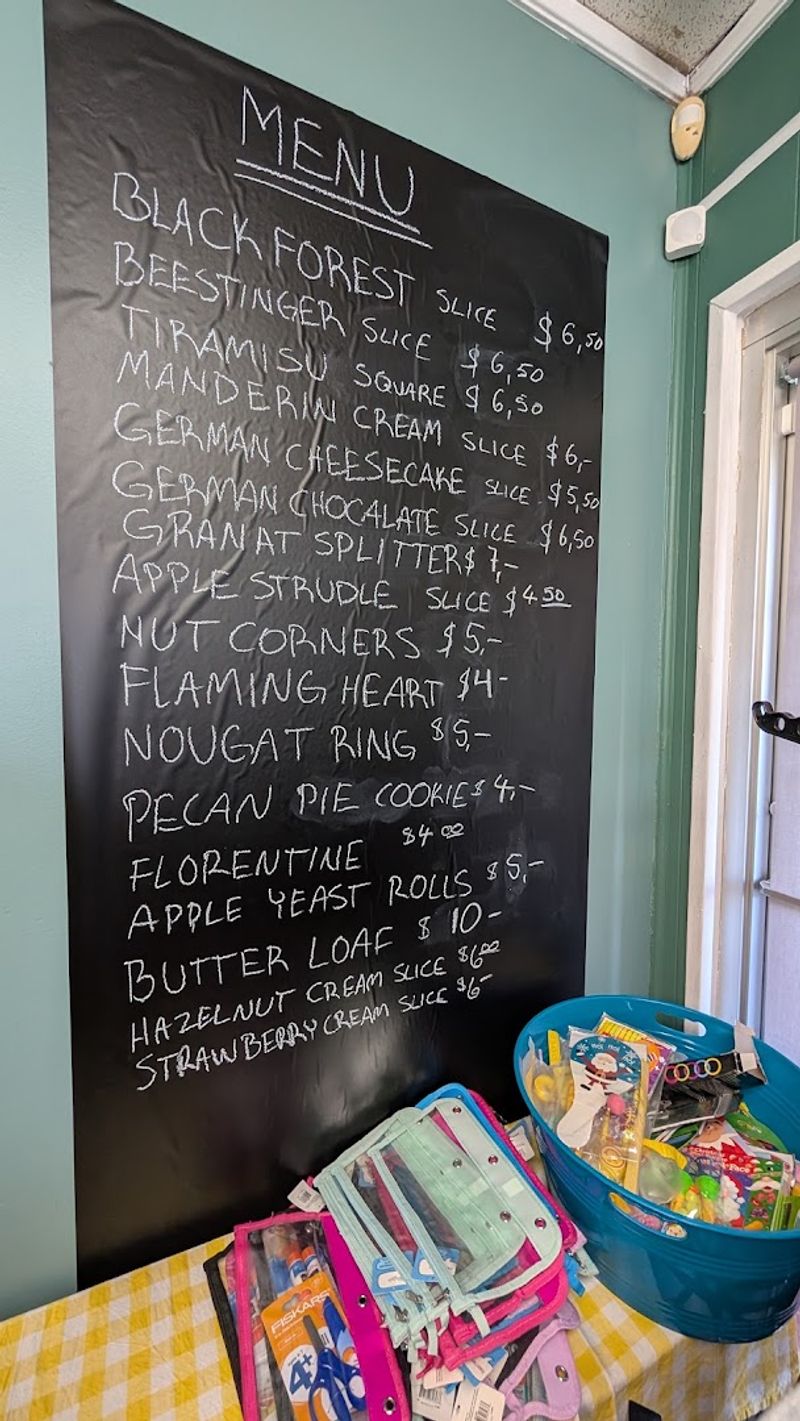 MENU
BLACK FOREST SLICE $6,50
BEESTINGER SLICE $6,50
TIRAMISU SQUARE $6,50
MANDERIN CREAM SLICE $6,-
GERMAN CHEESECAKE SLICE $5,50
GERMAN CHOCALATE SLICE $6,50
GRANAT SPLITTER $7,-
APPLE STRUDLE SLICE $4 50
NUT CORNERS $5,-
FLAMING HEART $4-
NOUGAT RING $5,-
PECAN PIE COOKIE $4,-
FLORENTINE $4 00
APPLE YEAST ROLLS $5,-
BUTTER LOAF $10-
HAZELNUT CREAM SLICE $6 00
STRAWBERRY CREAM SLICE $6-
FISKARS
4+